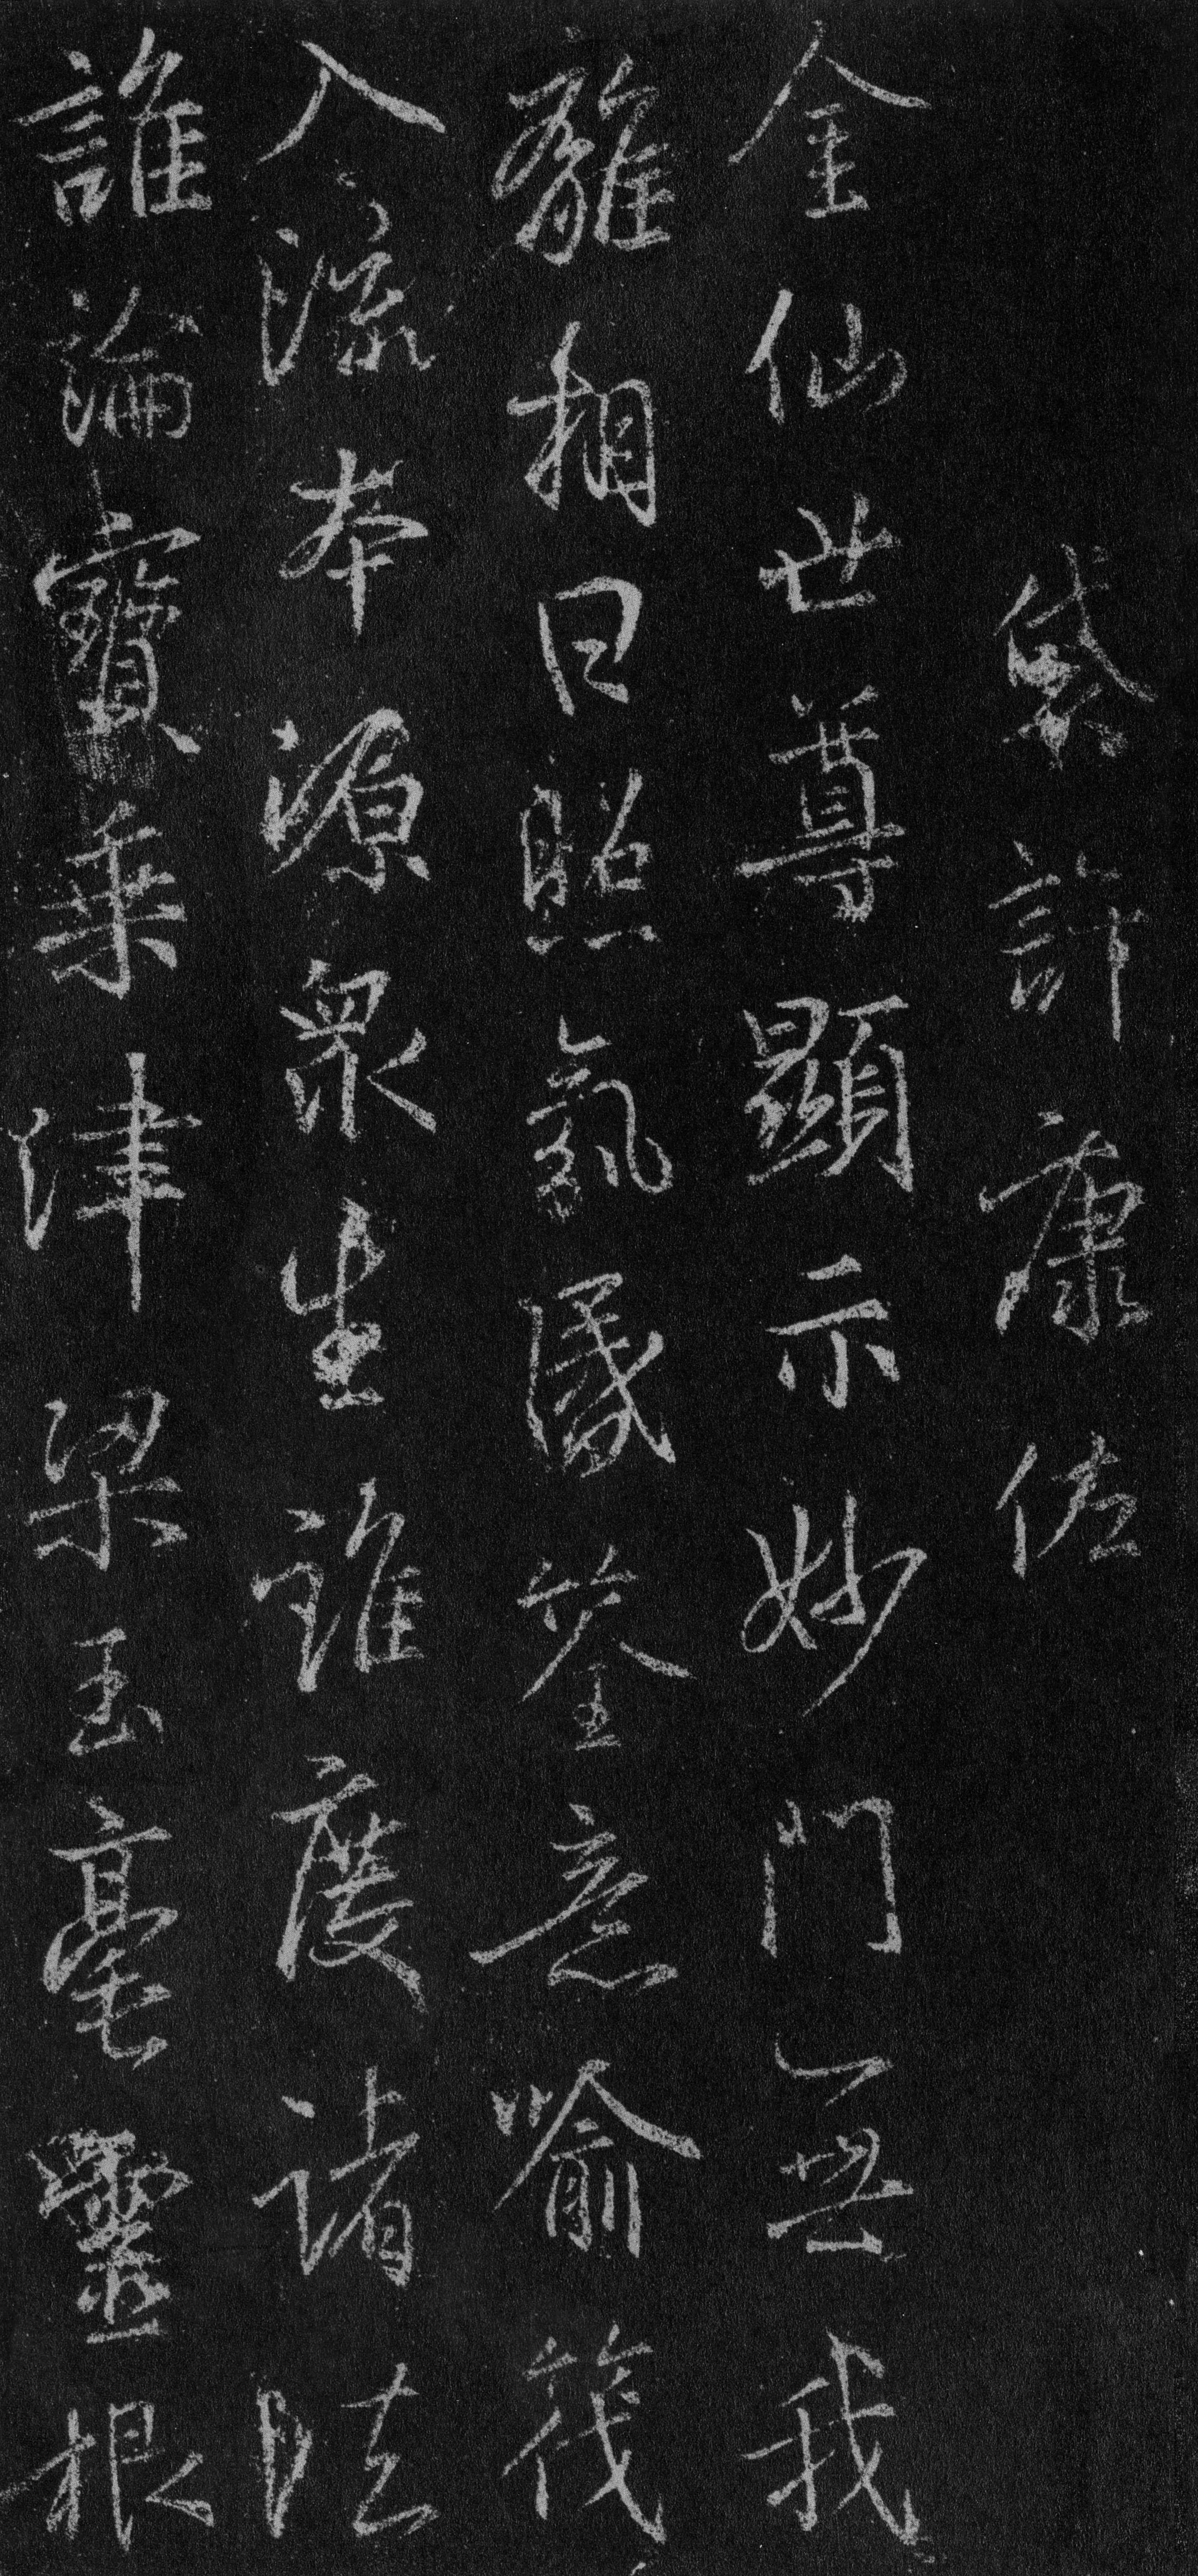 許康佐
金仙世尊顯示妙門無我
離相日照氛昬筌意喻筏
入流本源衆生誰度諸法
誰論寶乘津梁玉毫靈根